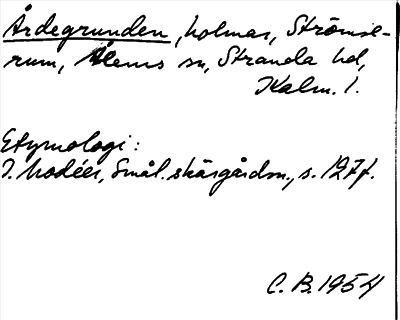 Årdegrunden, holmar, Strömse-
rum, Ålems sn, Stranda hd,
Kalm. l.
Etymologi:
I. Modéer, Smål. skärgårdsn., s. 127 f.
C. B. 1954